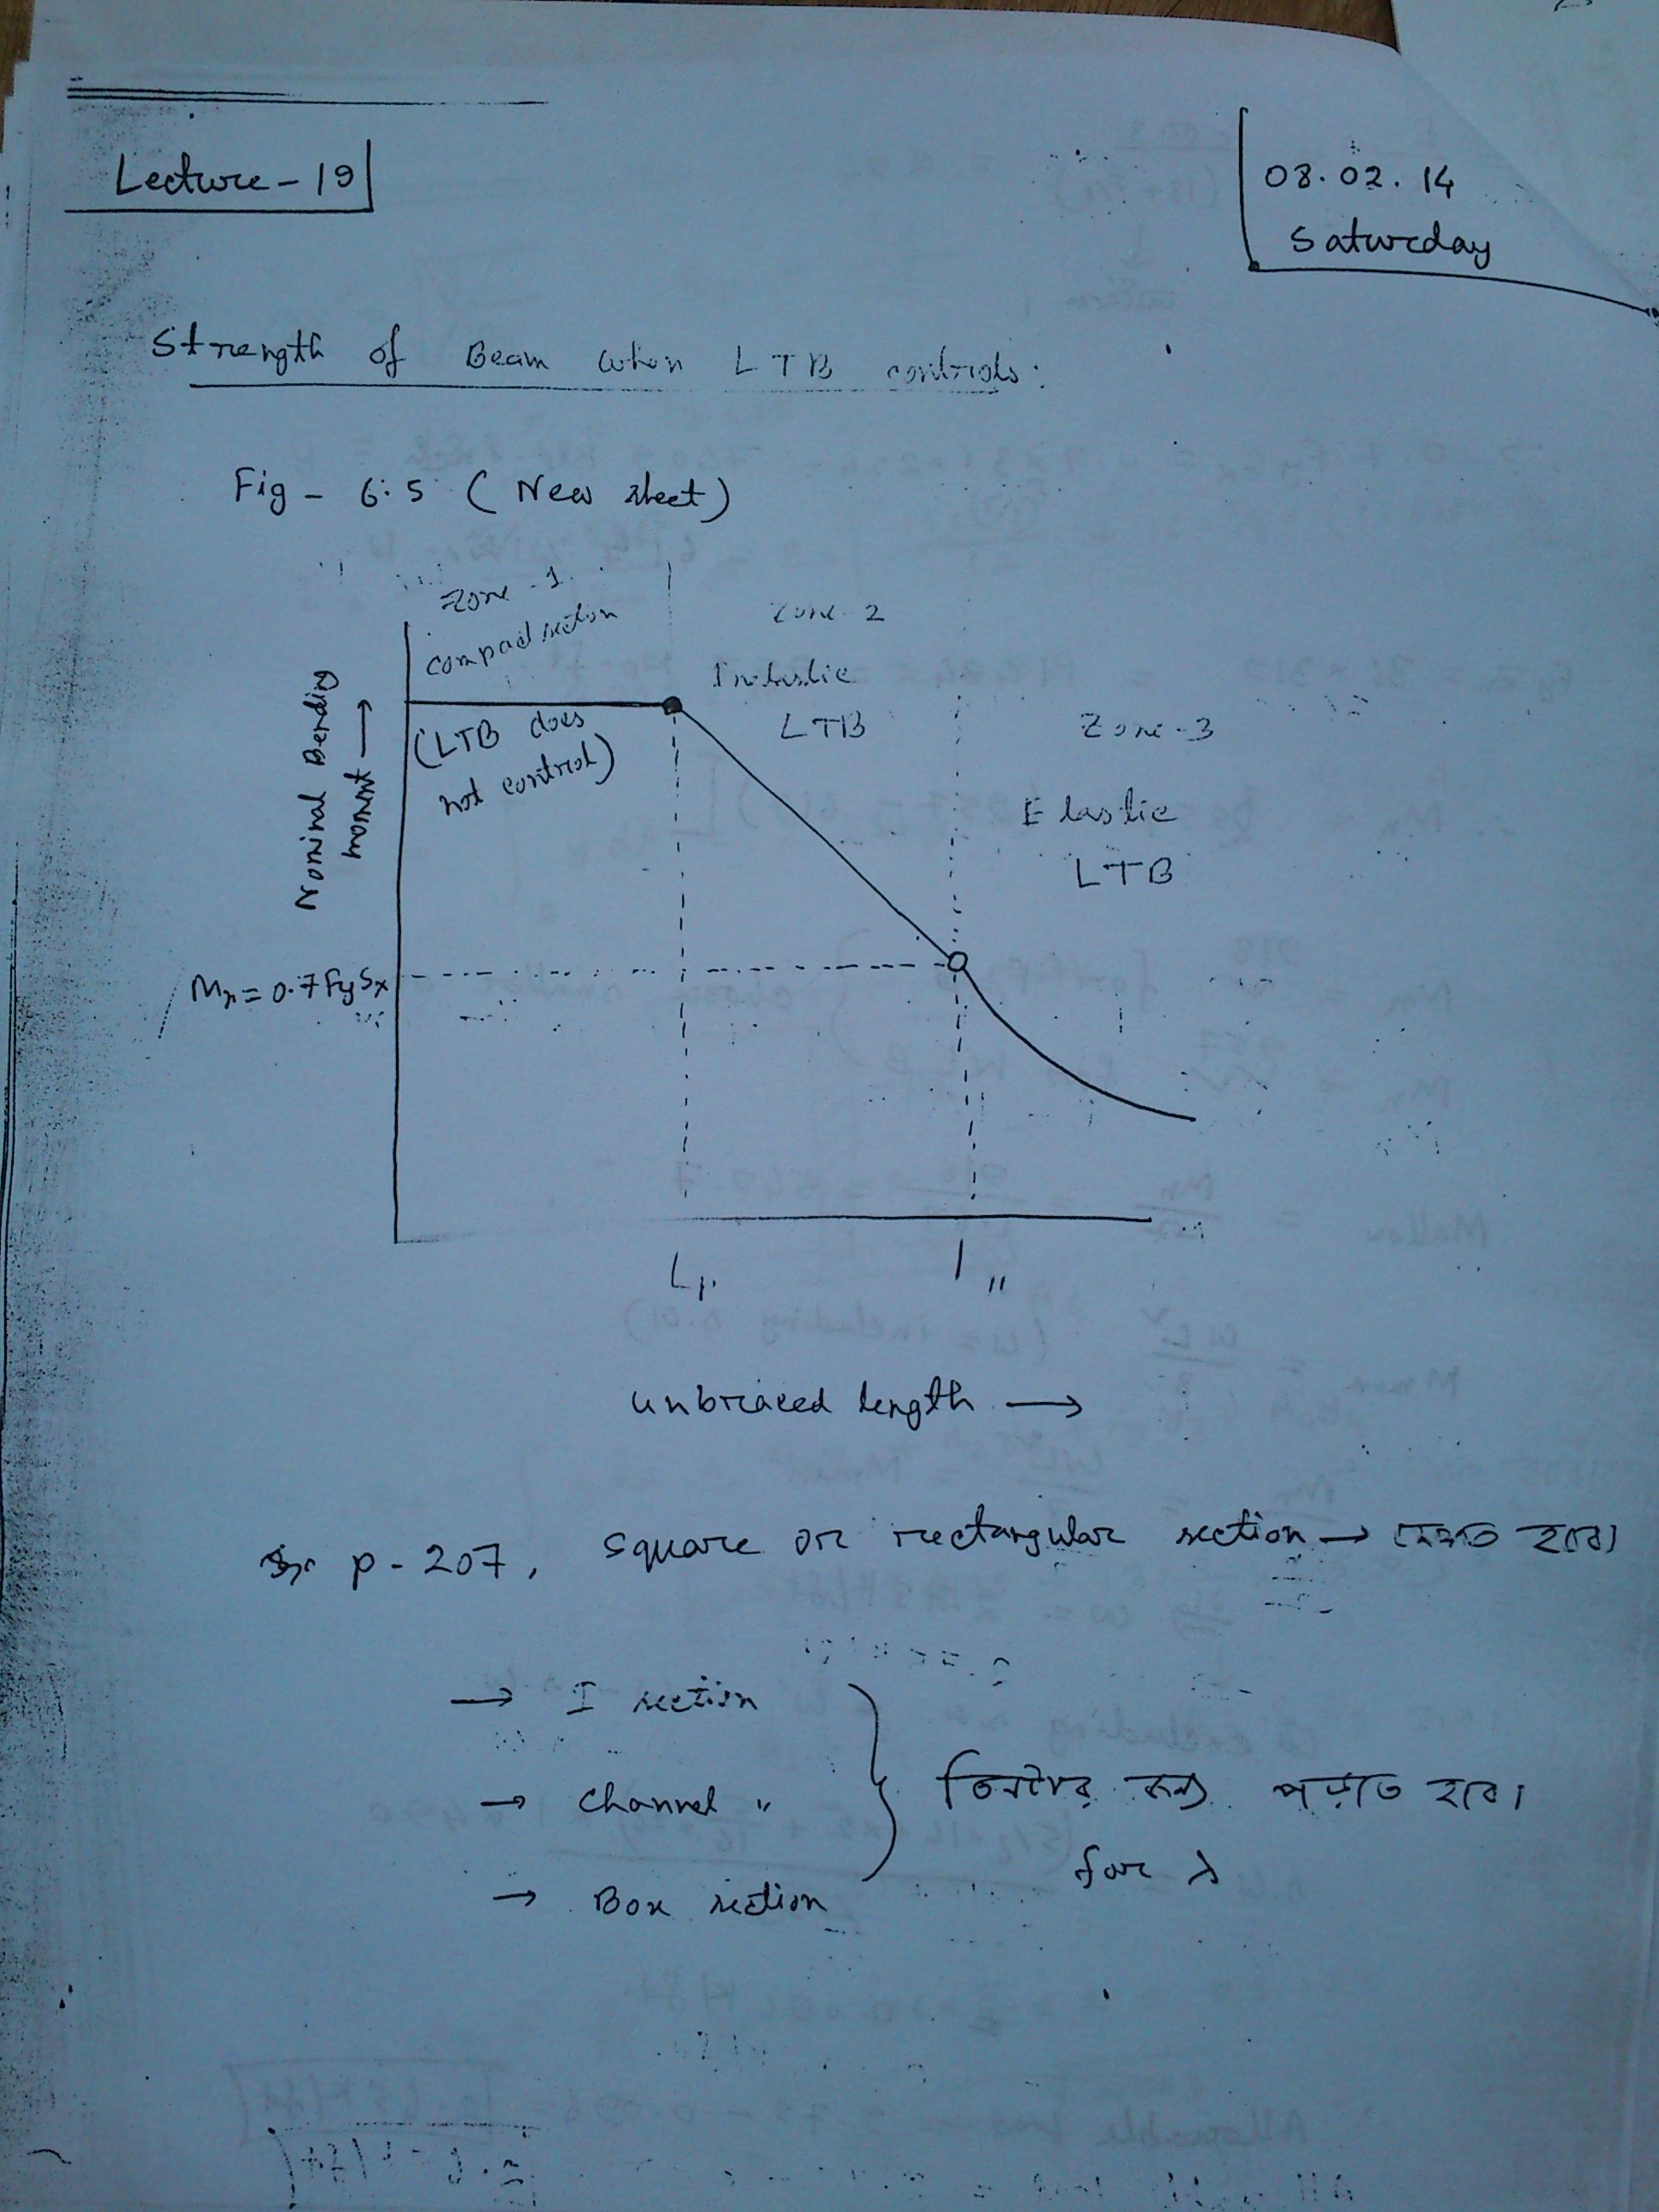 Lecture - 19
08.02.14
Saturday
Strength of Beam when LTB controls:
Fig - 6.5 (New sheet)
Zone - 1
compact section
(LTB does
not control)
Zone - 2
Inelastic
LTB
Zone - 3
Elastic
LTB
Nominal Bending
moment →
Mr = 0.7 FySx
Lp
unbraced length →
p - 207, square or rectangular section → দেখতে হবে।
→ I section
→ channel "
→ Box section
তিনটার জন্য পড়তে হবে।
for λ